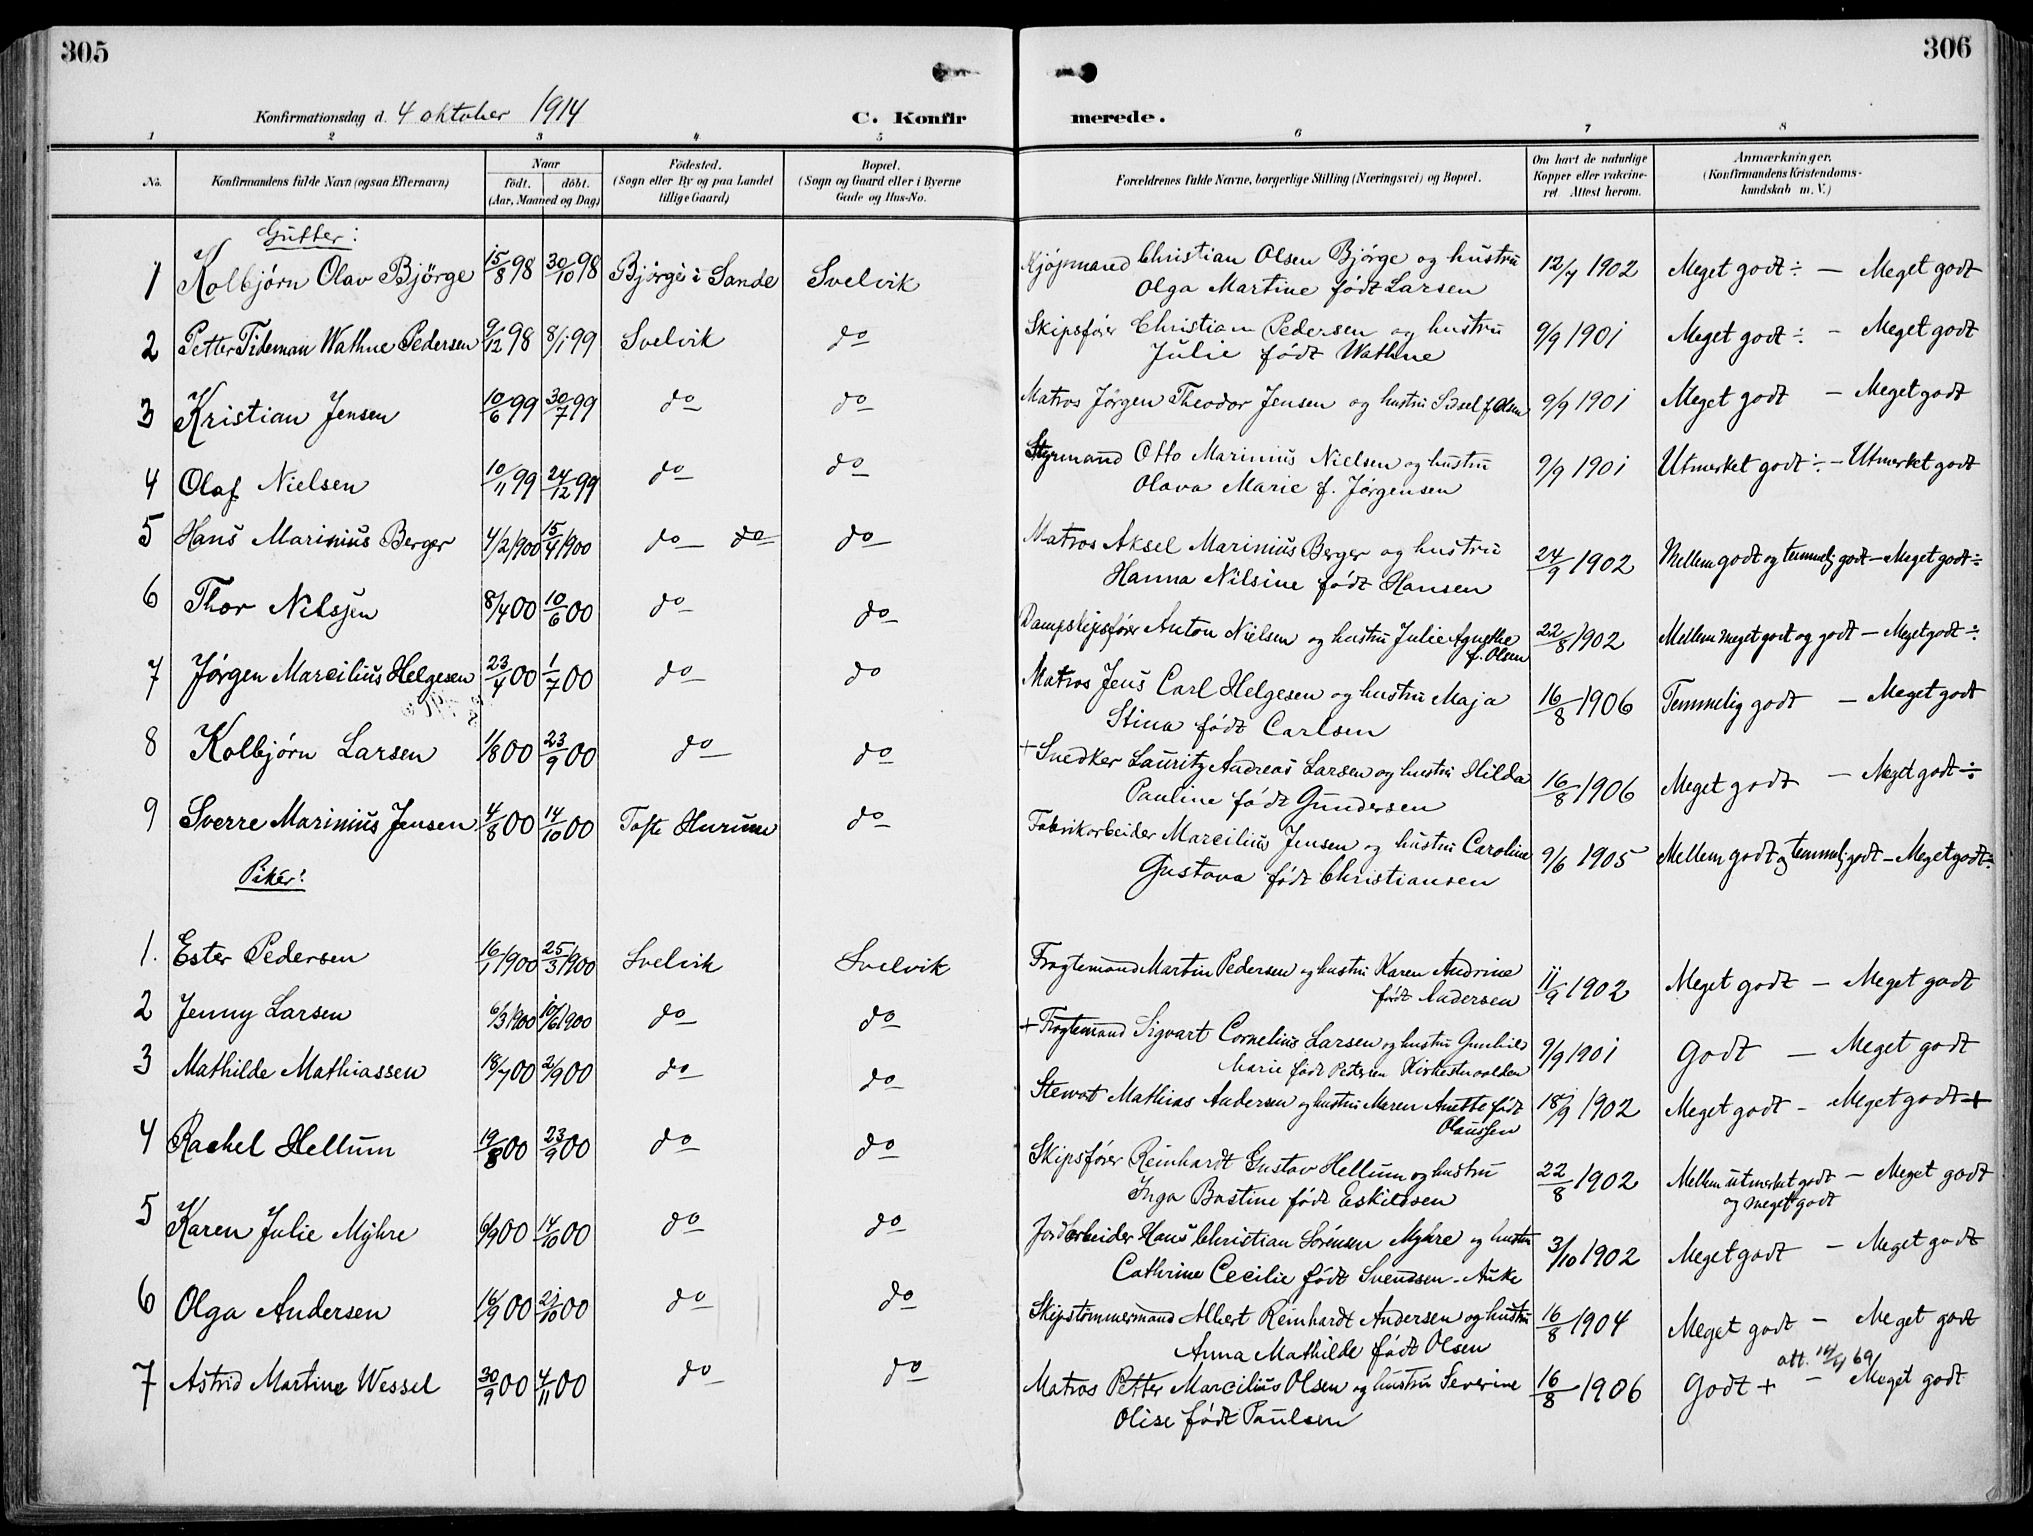 305
306
Konfirmationsdag d. 4 oktober 1914
C. Konfir
merede.
1 2 3 4 5 6 7 8
No.
Konfirmandens fulde Navn (ogsaa Efternavn)
Naar
født. døbt.
(Aar, Maaned og Dag)
Födested.
(Sogn eller By og paa Landet
tillige Gaard)
Bopæl.
(Sogn og Gaard eller i Byerne
Gade og Hus-No.
Forældrenes fulde Navne, borgerlige Stilling (Næringsvei) og Bopæl.
Om havt de naturlige
Kopper eller vakcine-
ret Attest herom.
Anmærkninger.
(Konfirmandens Kristendoms-
kundskab m. V.)
Gutter:
1 Kolbjørn Olav Bjørge 15/8 98 30/10 98 Bjørge i Sande Svelvik Kjøpmand Christian Olsen Bjørge og hustru 12/7 1902 Meget godt ÷ — Meget godt
Olga Martine født Larsen
2 Petter Tideman Wathne Pedersen 9/12 98 8/1 99 Svelvik do Skipsfører Christian Pedersen og hustru 9/9 1901 Meget godt ÷ — Meget godt
Julie født Wathne
3 Kristian Jensen 10/6 99 30/7 99 do do Matros Jørgen Theodor Jensen og hustru Sidsel f. Olsen 9/9 1901 Meget godt — Meget godt
4 Olaf Nielsen 10/11 99 24/12 99 do do Styrmand Otto Marinius Nielsen og hustru 9/9 1901 Utmerket godt ÷ — Utmerket godt
Olava Marie f. Jørgensen
5 Hans Marinius Berger 4/2 1900 15/4 1900 do do do Matros Aksel Marinius Berger og hustru 24/9 1902 Mellem godt og temmelig godt — Meget godt ÷
Hanna Nilsine født Hansen
6 Thor Nilsen 8/4 00 10/6 00 do do Dampskipsfører Anton Nielsen og hustru Julie Agnethe 22/8 1902 Mellem meget godt og godt — Meget godt ÷
f. Olsen
7 Jørgen Marcilius Helgesen 23/4 00 1/7 00 do do Matros Jens Carl Helgesen og hustru Maja 16/8 1906 Temmelig godt — Meget godt
Stina født Carlsen
8 Kolbjørn Larsen 1/8 00 23/9 00 do do + Snedker Lauritz Andreas Larsen og hustru Hilda 16/8 1906 Meget godt — Meget godt ÷
Pauline født Gundersen
9 Sverre Marinius Jensen 4/8 00 14/10 00 Tofte Hurum do Fabrikarbeider Marcilius Jensen og hustru Caroline 9/6 1905 Mellem godt og temmelig godt — Meget godt ÷
Gustava født Christiansen
Piker:
1. Ester Pedersen 16/1 1900 25/3 1900 Svelvik Svelvik Fragtemand Martin Pedersen og hustru Karen Andrine 11/9 1902 Meget godt — Meget godt
født Andersen
2 Jenny Larsen 6/3 1900 10/6 1900 do do + Fragtemand Sigvart Cornelius Larsen og hustru Gunhild 9/9 1901 Godt — Meget godt
Marie født Petersen
3 Mathilde Mathiassen 18/7 00 2/9 00 do do Stewart Mathias Andersen og hustru Maren Anette født 18/9 1902 Meget godt — Meget godt +
Olaussen
4 Rachel Hellum 19/8 00 23/9 00 do do Skipsfører Reinhardt Gustav Hellum og hustru 22/8 1902 Mellem utmerket godt — Meget godt
Inga Bastine født Eskildsen og meget godt
5 Karen Julie Myhre 6/9 00 14/10 00 do do Jordarbeider Hans Christian Sørensen Myhre og hustru 3/10 1902 Meget godt — Meget godt
Cathrine Cecilie født Svendsen - Auke
6 Olga Andersen 16/9 00 21/10 00 do do Skipstømmermand Albert Reinhardt Andersen og hustru 16/8 1904 Meget godt — Meget godt
Anna Mathilde født Olsen
att. 14/4 69/
7 Astrid Martine Wessel 30/9 00 4/11 00 do do Matros Petter Marcilius Olsen og hustru Severine 16/8 1906 Godt + — Meget godt
Olise født Paulsen